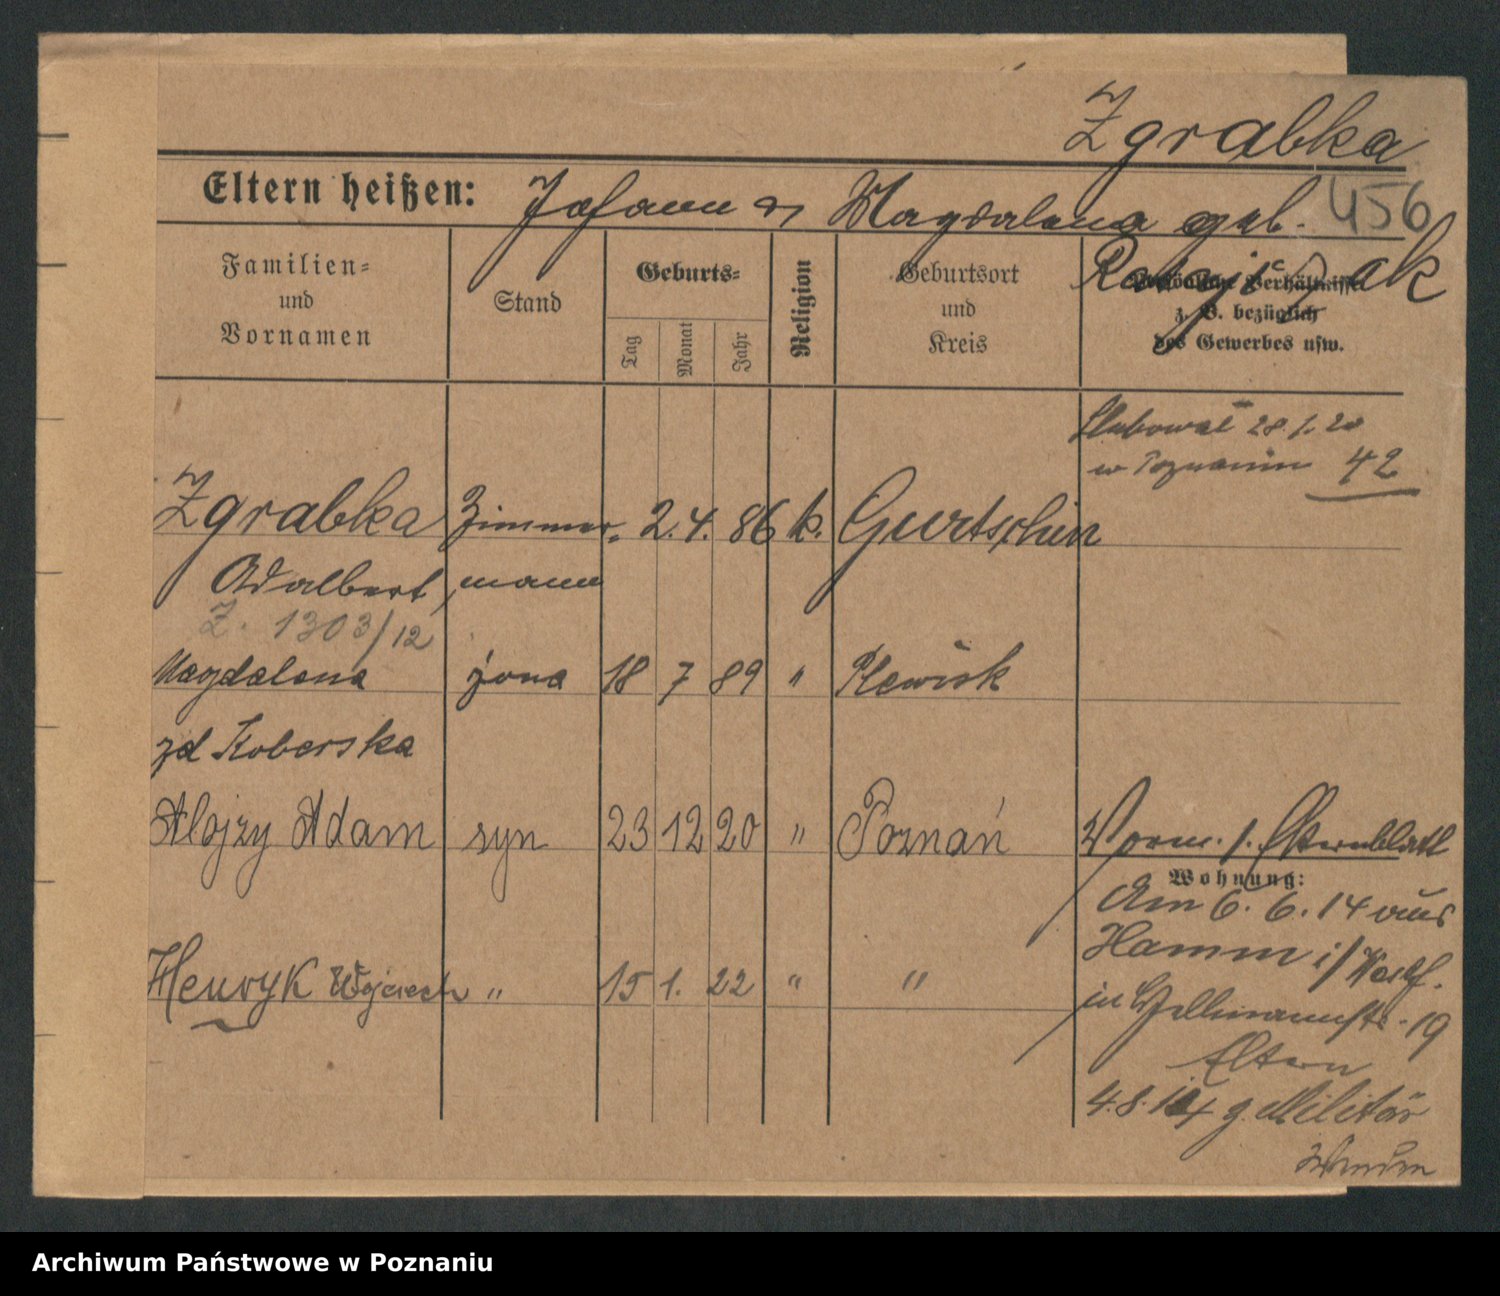 Zgrabka
Eltern heißen: Johann u Magdalena geb. 456
Ratajczak
Familien=
und
Vornamen
Stand
Geburts=
Tag
Monat
Jahr
Religion
Geburtsort
und
Kreis
Persönliche Verhältnisse
z. B. bezüglich
des Gewerbes usw.
Ślubował 28.1.20
w Poznaniu 42
Zgrabka Zimmer= 2. 4. 86 k. Gurtschin
Adalbert, mann
Z. 1303/12
Magdalena żona 18 7 89 " Plewisk
zd Koberska
Alojzy Adam syn 23 12 20 " Poznań
Vorm. s. Elternblatt
Wohnung:
Am 6. 6. 14 aus
Hamm i/Westf.
Henryk Wojciech " 15 1. 22 " "
in 19
Eltern
4.8.14 z. Militär